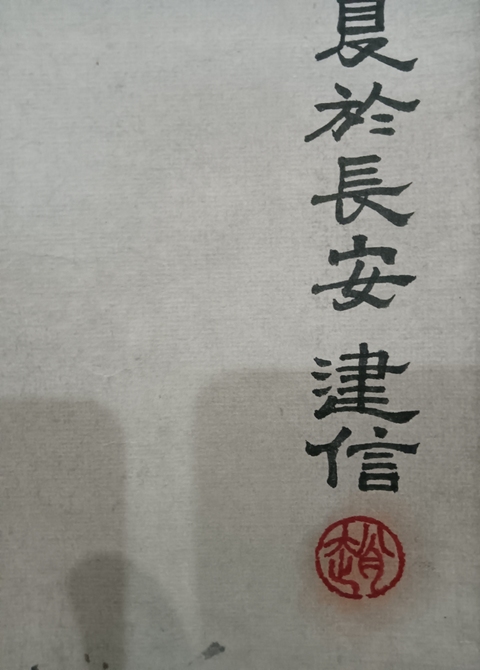 夏於長安 建信
趙